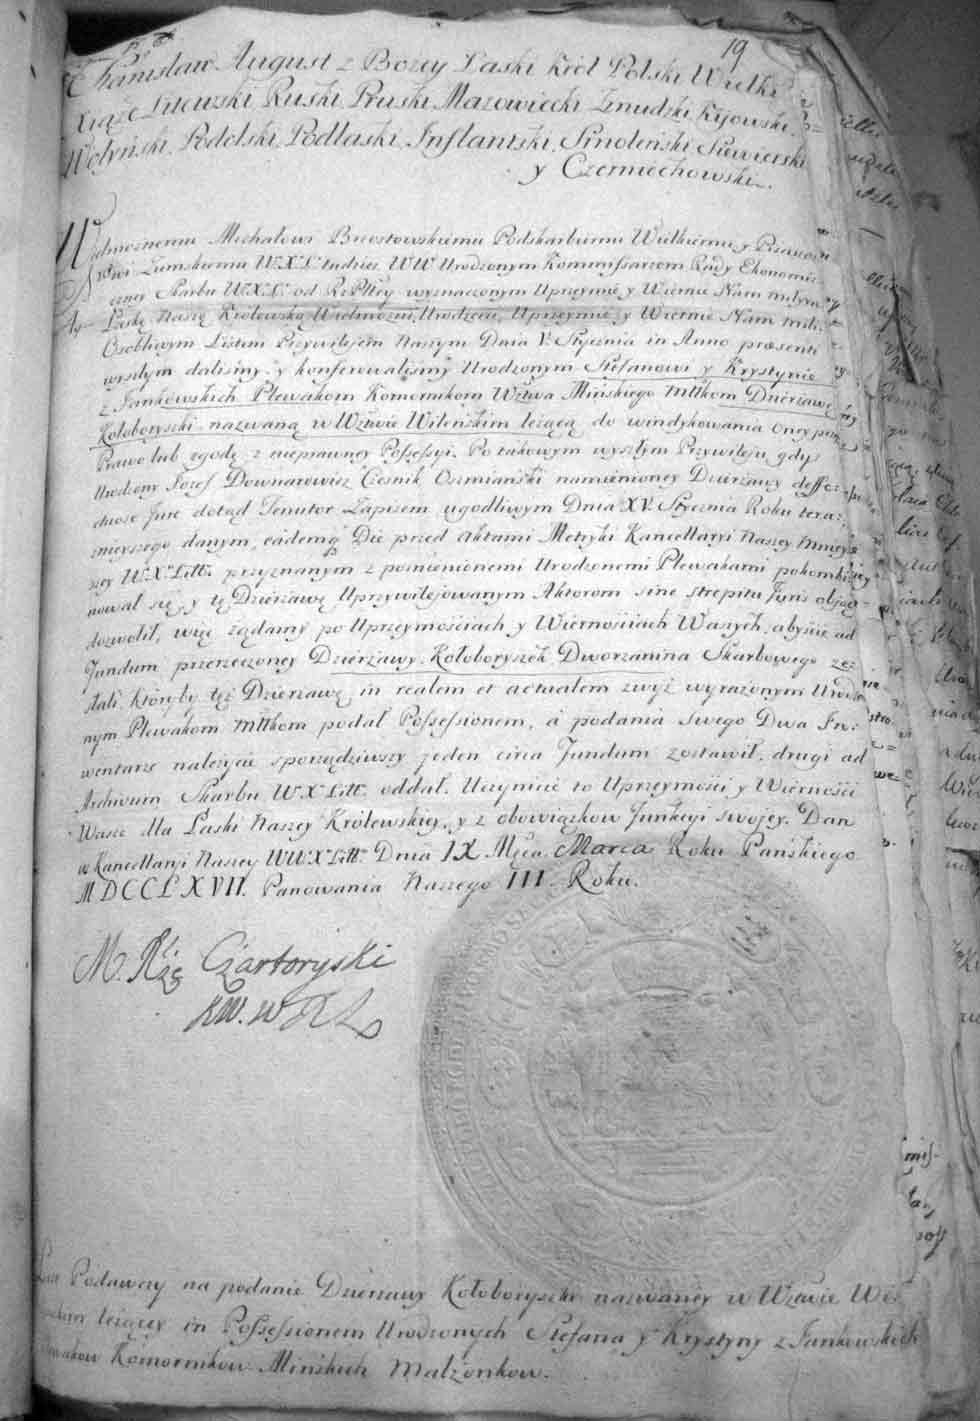 19
Stanisław August z Bożey Łaski Krol Polski Wielki
Xiąże Litewski, Ruski, Pruski, Mazowiecki Zmudzki, Kijowski,
Wołyński, Podolski, Podlaski, Inflantski, Smoleński Siewierski
y Czerniechowski.
Wielmożnemu Michałowi Brzostowskiemu Podskarbiemu Wielkiemu y Pisarzowi
Ziemskiemu W.X.L. tudziez WW Urodzonym Kommissarzom Rady Ekonomi-
czney Skarbu W.X.L. od RzPltey wyznaczonym Uprzeymie y Wiernie Nam miłym
Łaskę Naszą Krolewską. Wielmożni, Urodzeni, Uprzeymie y Wiernie Nam mili.
Osobliwym Listem Przywilejem Naszym Dnia V. Stycznia in Anno præsenti
wyszłym daliśmy y konferowaliśmy Urodzonym Stefanowi y Krystynie
z Jankowskich Plewakom Komornikom Wztwa Mińskiego Młłkom Dzierżawę
Kołoboryszki nazwaną w Wztwie Wileńskim leżącą do windykowania oney przez
Prawo lub zgodę z nieprawney Possessyi. Po takowym wyszłym Przywileju, gdy
Urodzony Jozef Downarowicz Cześnik Oszmianski namienioney Dzierżawy
Jure dotąd Tenutor Zapisem ugodliwym Dnia XV. Stycznia Roku tera-
znieyszego danym, eademq Die przed Aktami Metryki Kancellaryi Naszey mniey-
szey W.X.Litt. przyznanym z pomienionemi Urodzonemi Plewakami pokombi-
nował się, y tę Dzierżawę Uprzywilejowanym Aktorom sine strepitu Juris objąć
dozwolił, więc żądamy po Uprzeymościach y Wiernościach Waszych, abyście ad
fundum przerzeczoney Dzierżawy Kołoboryszek Dworzanina Skarbowego zes-
łali, któryby tęż Dzierżawę in realem et actualem zwyż wyrażonym Urodzo-
nym Plewakom Młłkom podał Possessionem, a podania swego Dwa In-
wentarze należycie sporządziwszy jeden circa fundum zostawił, drugi ad
Archivum Skarbu W.X.Litt. oddał. Uczynicie to Uprzeymości y Wierności
Wasze dla Łaski Naszey Krolewskiey, y z obowiązkow funkcyi swojey. Dan
w Kancellaryi Naszey WWXLitt. Dnia IX Mca Marca Roku Pańskiego
MDCCLXVII. Panowania Naszego III Roku.
M. Xże Czartoryski
KW. W X L
Podawczy na podanie Dzierżawy Kołoboryszki nazwaney w Wztwie Wi-
leżącey in Possessionem Urodzonych Stefana y Krystyny z Jankowskich
Komornikow Mińskich Małżonkow.